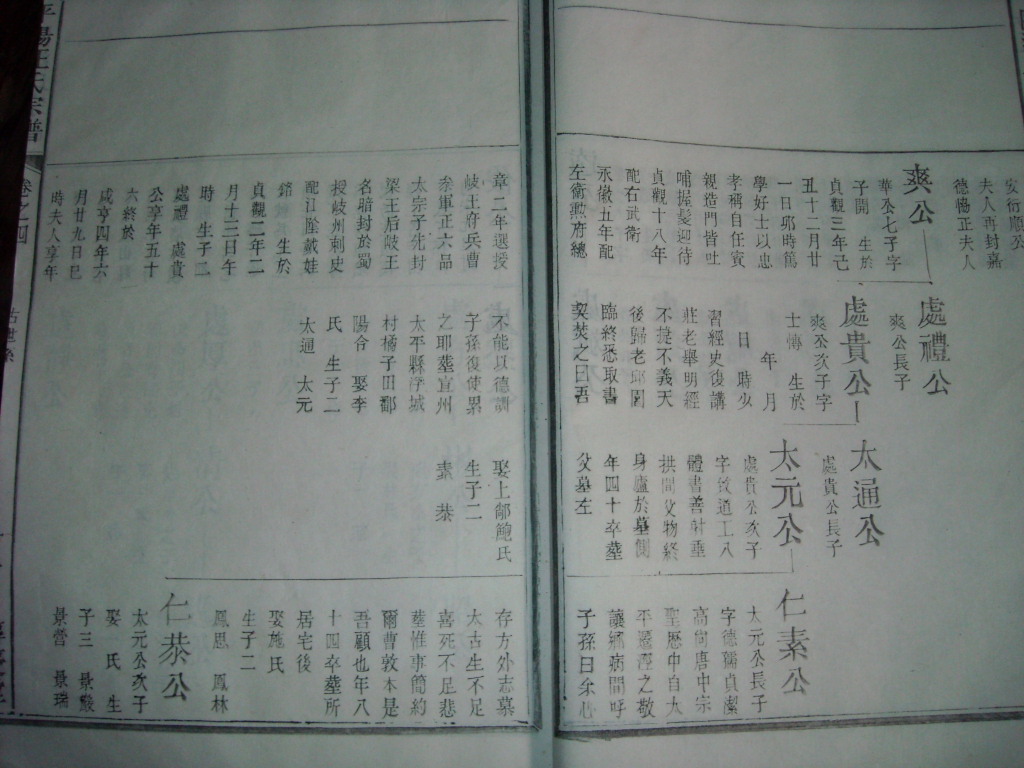 安衍慶兖
夫人再封嘉
德暢正夫人
爽公
華公七子字
子開 生於
貞觀三年己
丑十二月廿
一日卯時篤
學好士以忠
孝稱自任寅
親造門皆吐
哺握髮迎待
貞觀十八年
配石武衛
永徽五年配
左衛勲府總
章二年選授
岐王府兵曹
叅軍正六品
太宗子先封
梁王后岐王
名暗封於蜀
授岐州刺史
配江陰戴娃
銘 生於
貞觀二年二
月十三日午
時 生子二
處禮 處貴
公享年五十
六終於
咸亨四年六
月廿九日巳
時夫人享年
處禮公
爽公長子
處貴公
爽公次子字
士愽 生於
年 月
日 時少
習經史後講
莊老舉明經
不㨗不義天
後歸老邱園
臨終悉取書
契焚之曰吾
不能以德訓
子孫復使累
之耶塟宣州
太平縣浮城
村橘子田鄱
陽令 娶李
氏 生子二
太通 太元
太通公
處貴公長子
太元公
處貴公次子
字敦道工八
體書善射垂
拱間父物終
身廬於墓側
年四十卒塟
父墓左
娶上鄣鮑氏
生子二
素 恭
仁素公
太元公長子
字德孺貞潔
高尚唐中宗
聖歷中自大
平遷涇之敬
讓鄉病間呼
子孫曰余心
存方外志慕
太古生不足
喜死不足悲
塟惟事簡約
爾曹敦本是
吾顧也年八
十四卒塟所
居宅後
娶施氏
生子二
鳳思 鳳林
仁恭公
太元公次子
娶 氏 生
子三 景殷
景營 景瑞
平陽汪氏宗譜
卷之四